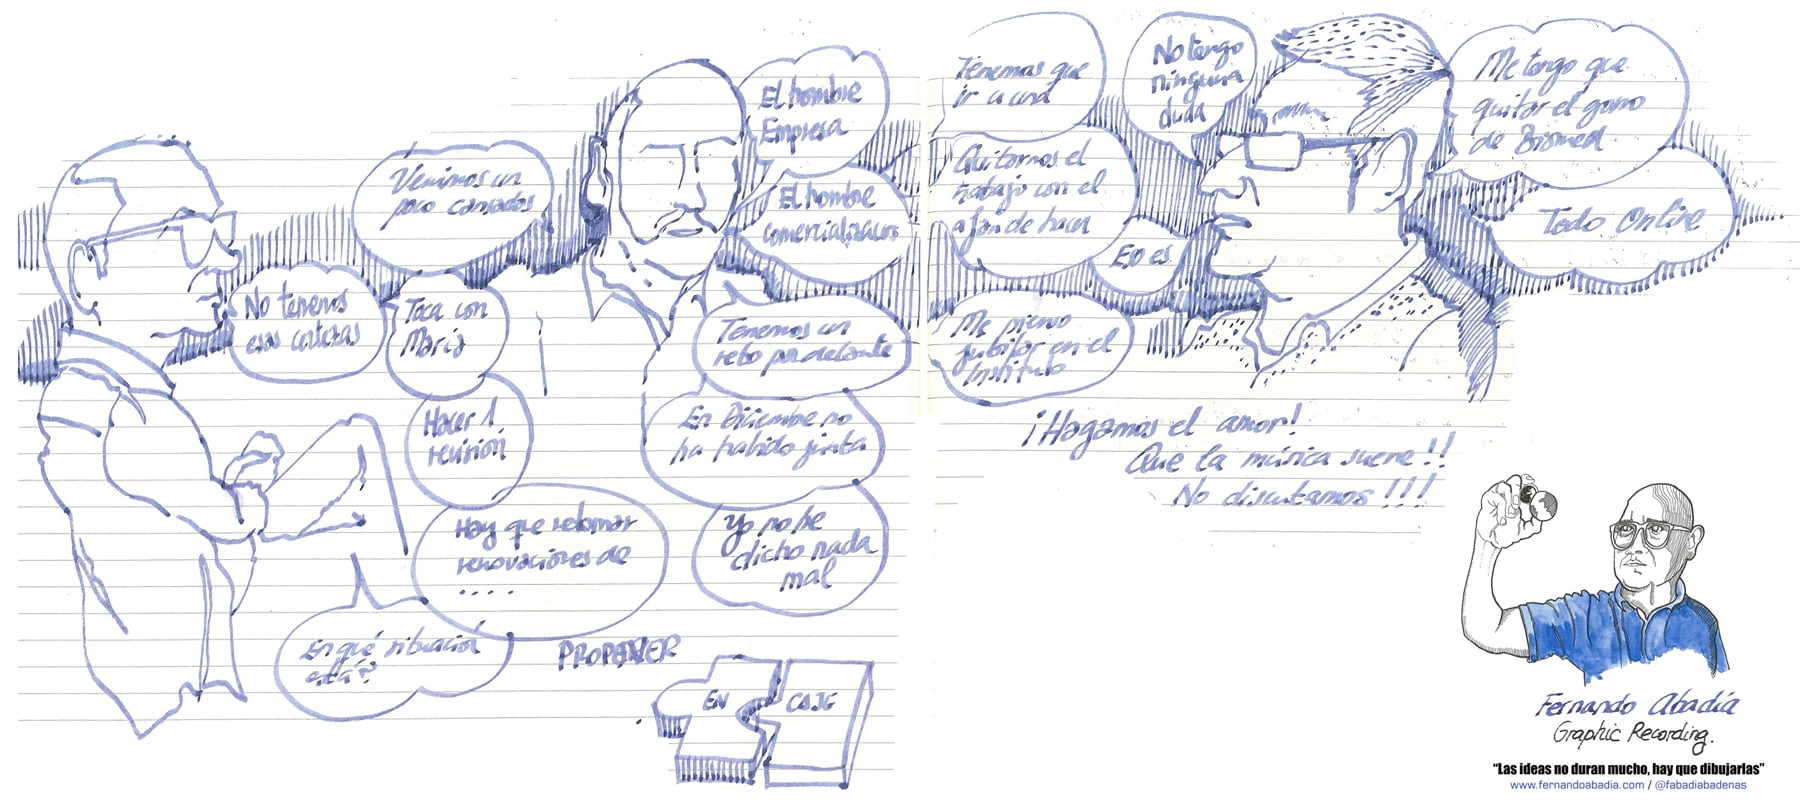 Venimos un
poco cansados
No tenemos
esas certezas
Toca con
María
Hacer 1
revisión
Hay que retomar
renovaciones de
....
En qué situación
está?
El hombre
Empresa
El hombre
comercialización
Tenemos un
reto por delante
En Diciembre no
ha habido junta
Yo no he
dicho nada
mal
PROPONER
EN CAJE
Tenemos que
ir a una
Quitarnos el
trabajo con el
afán de hacer
Eso es
Me pienso
jubilar en el
Instituto
No tengo
ninguna
duda
Me tengo que
quitar el gorro
de Biomed
Todo Online
¡Hagamos el amor!
Que la música suene!!
No discutamos!!!
Fernando Abadía
Graphic Recording.
“Las ideas no duran mucho, hay que dibujarlas”
www.fernandoabadia.com / @fabadiabadenas